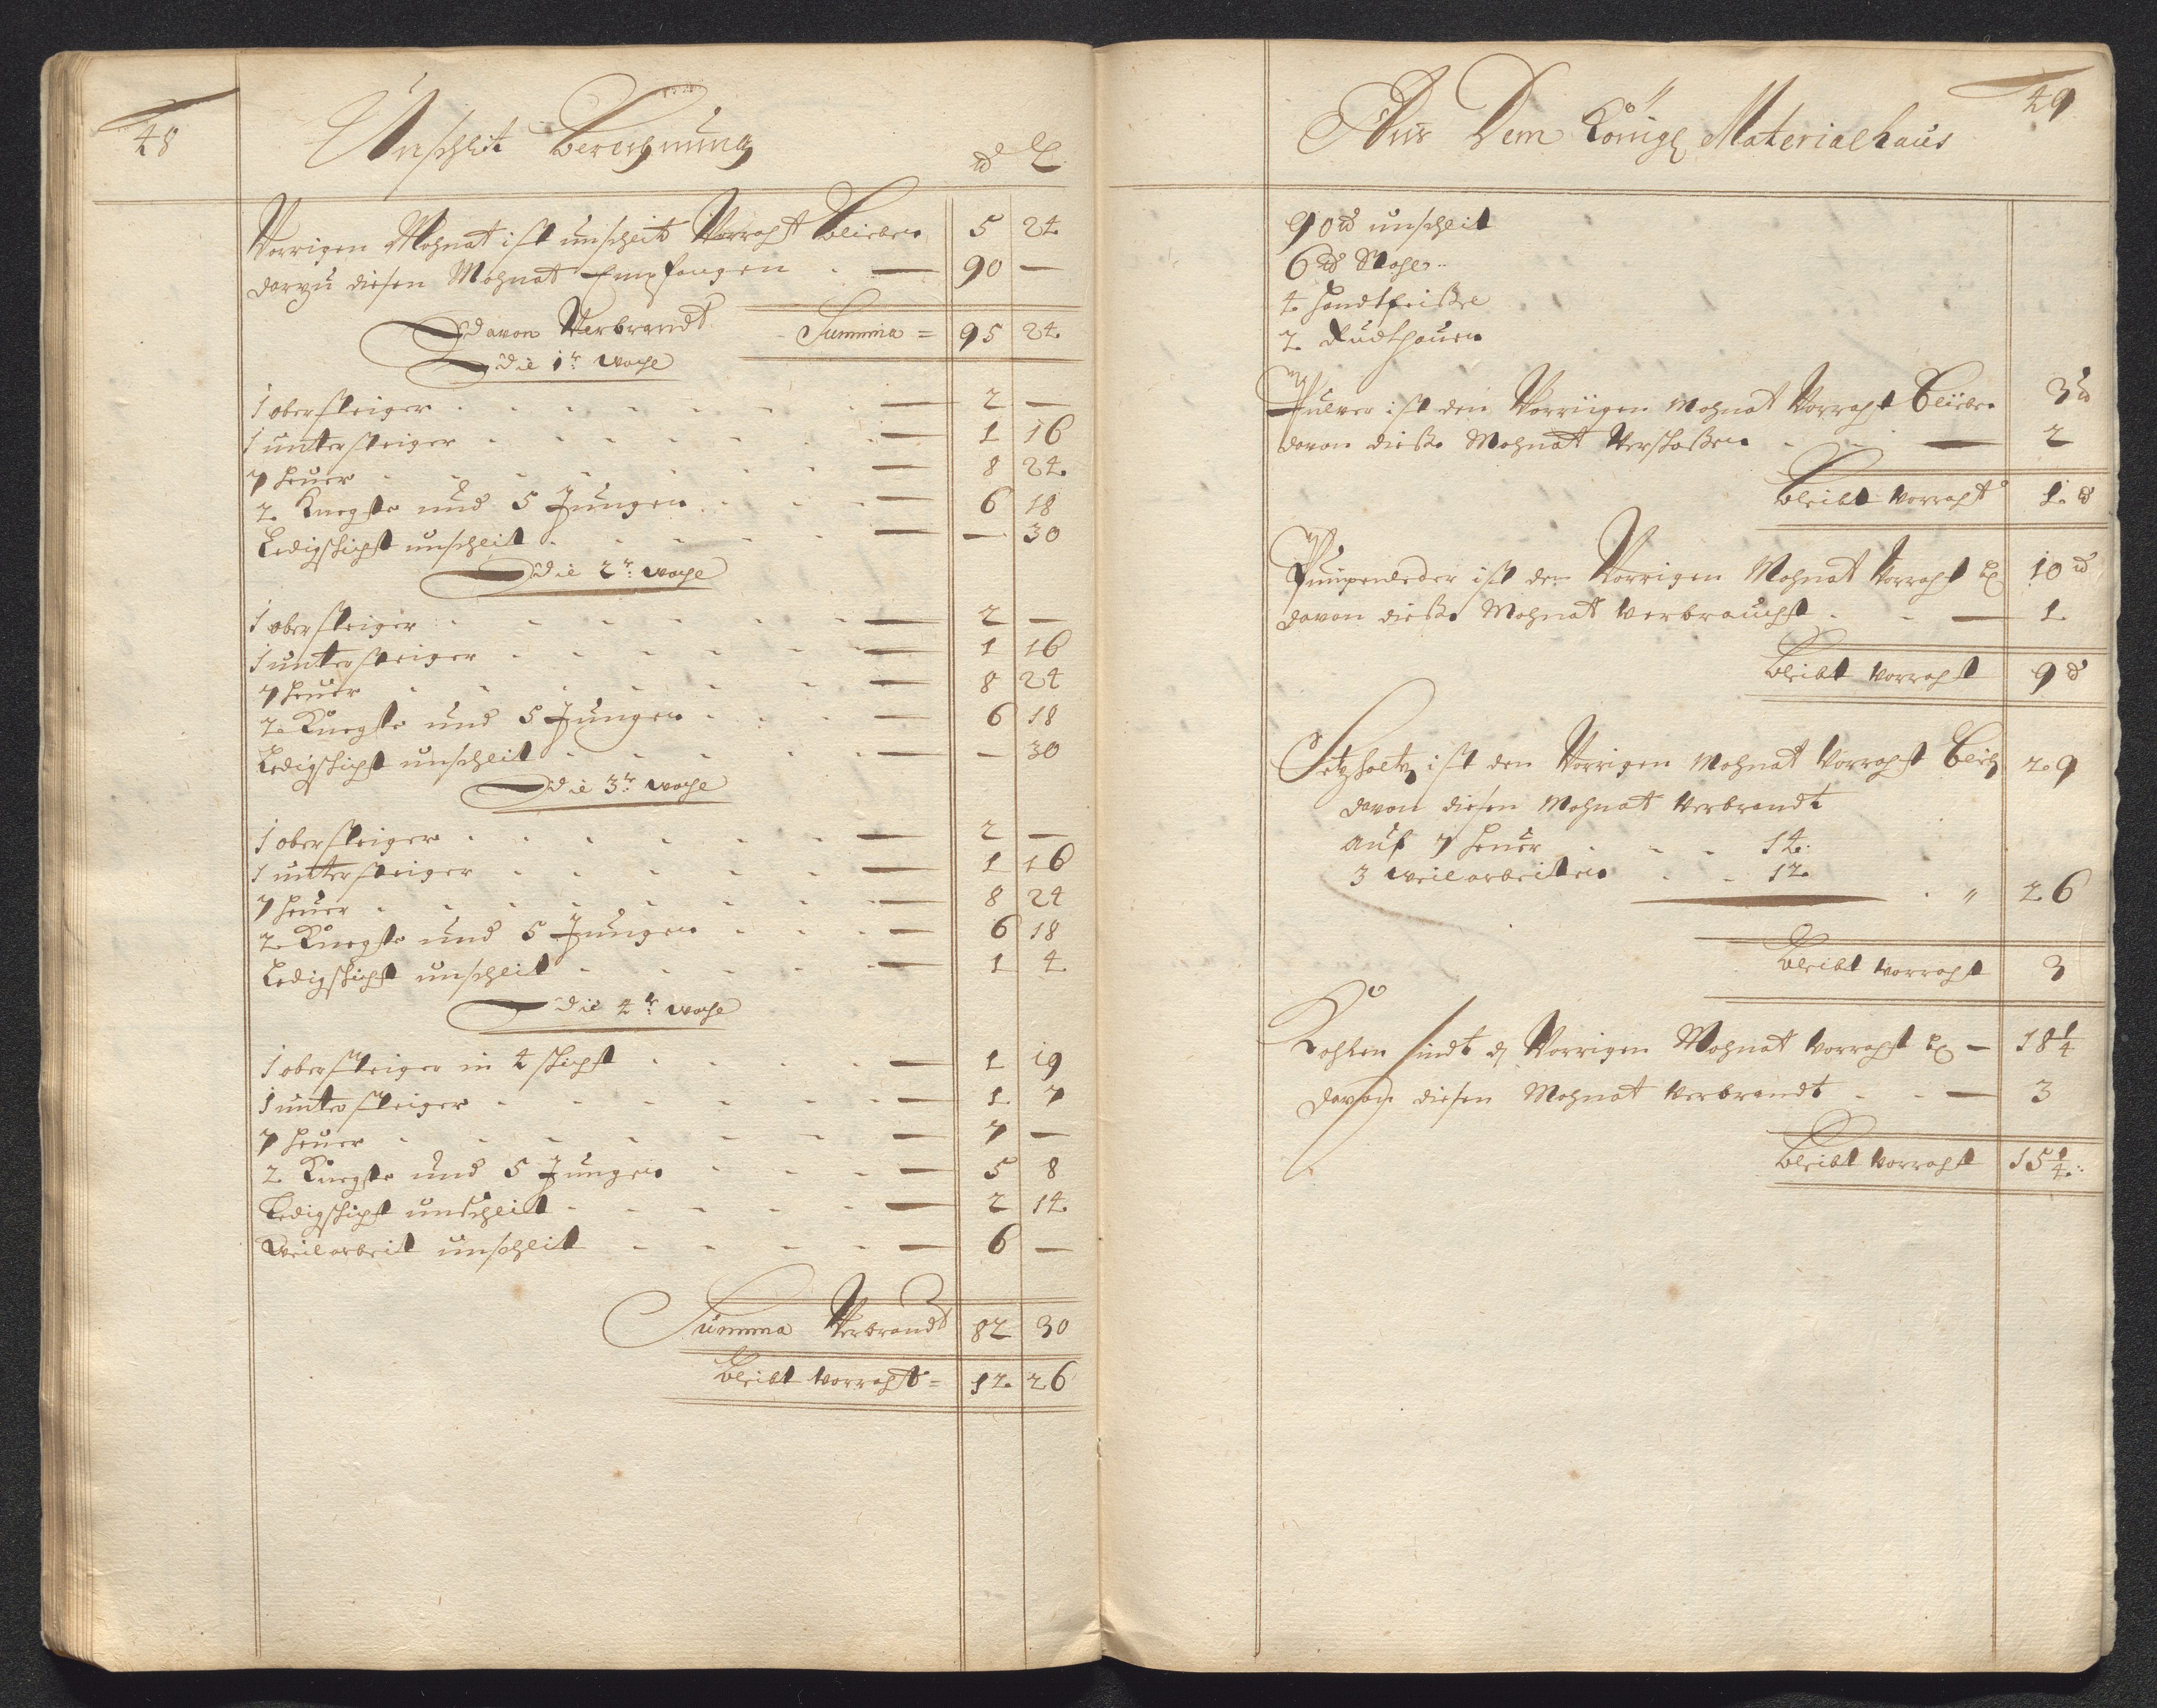 48
Unschlit Berechnung
℔ L
Vorrigen Mohnat ist unschleit Vorraht Blieben 5 24
darzu diesen Mohnat Empfangen . — 90 —
davon Verbrandt Summa = 95 24
die 1te woche
1 obersteiger — 2 —
1 untersteiger — 1 16
7 heuer — 8 24
2 Knechte und 5 Jungen — 6 18
Ledigschicht unschleit — — 30
die 2te woche
1 obersteiger — 2 —
1 untersteiger — 1 16
7 heuer — 8 24
2 Knechte und 5 Jungen — 6 18
Ledigschicht unschleit — — 30
die 3te woche
1 obersteiger — 2 —
1 untersteiger — 1 16
7 heuer — 8 24
2 Knechte und 5 Jungen — 6 18
Ledigschicht unschleit — 1 4
die 4te woche
1 obersteiger in 4 schicht — 1 19
1 untersteiger — 1 7
7 heuer — 7 —
2 Knechte und 5 Jungen — 5 8
Ledigschicht unschleit — 2 14
Weilarbeit unschleit — 6 —
Summa Verbrandt 82 30
bleibt vorraht = 12 26
49
Aus Dem Königl Materialhaus
90 ℔ unschleit
6 ℔
4
2
Pulver ist den Vorrigen Mohnat Vorraht Blieben 3 ℔
davon dießen Mohnat Verschoßen — 2
bleibt vorraht 1 ℔
Pumpenleder ist den Vorrigen Mohnat Vorraht bl 10 ℔
davon dießen Mohnat verbraucht — 1
bleibt vorraht 9 ℔
Setzholtz ist den Vorrigen Mohnat Vorraht blieb 29
davon diesen Mohnat Verbrandt
auf 7 heuer 14
3 weilarbeiten 12
26
bleibt vorraht 3
Kohlen sindt d Vorrigen Mohnat vorraht bl — 18 1/4
davon diesen Mohnat Verbrandt — 3
bleibt vorraht 15 1/4